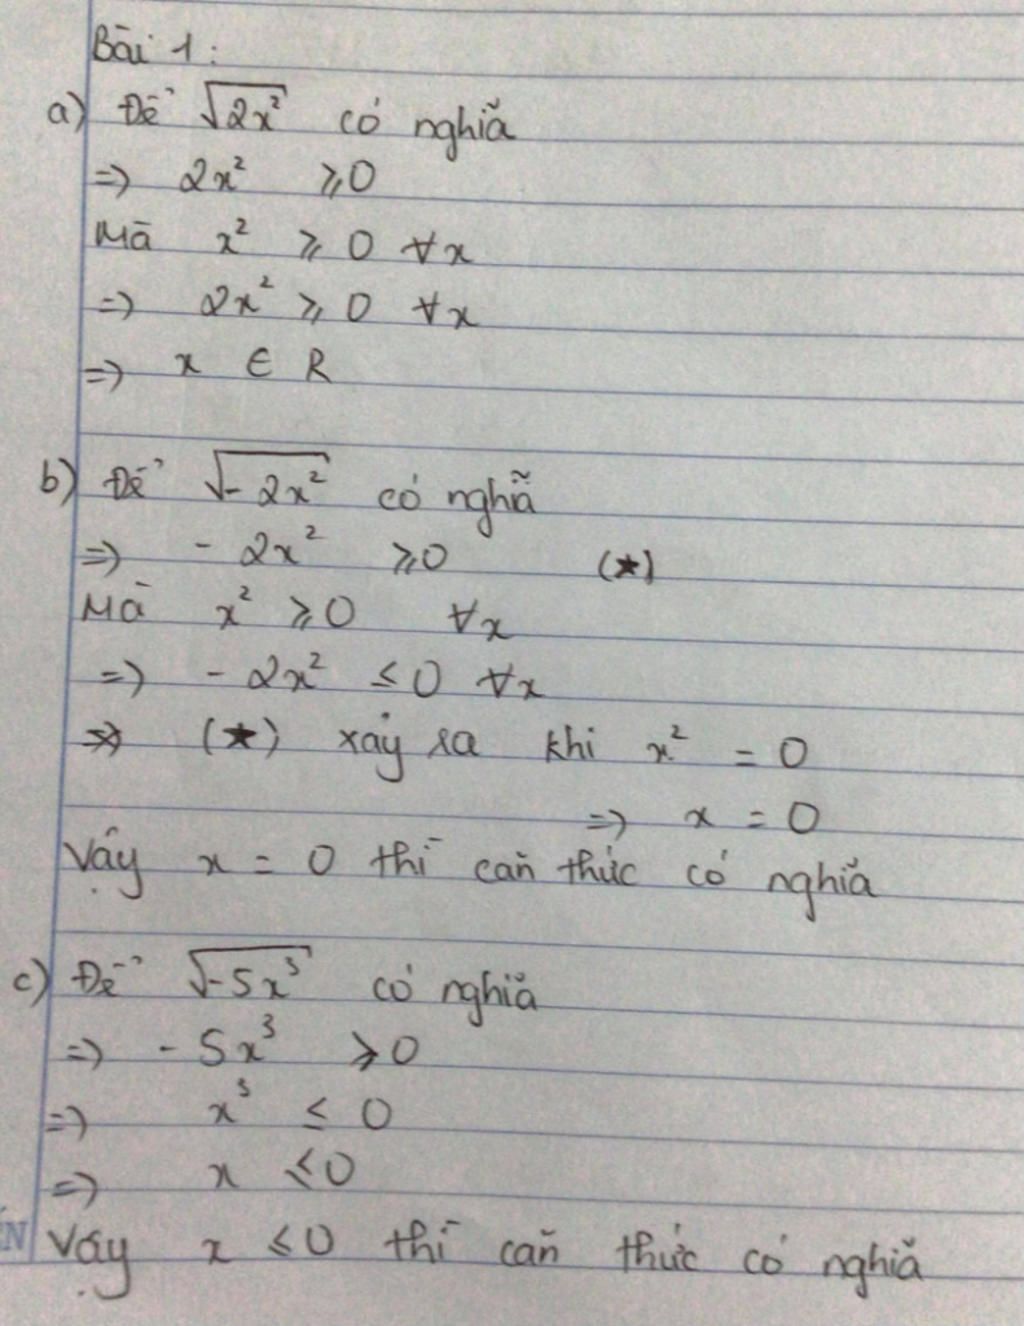 Bài 1:
a) Để √2x² có nghĩa
=> 2x² ⩾ 0
Mà x² ⩾ 0 ∀x
=> 2x² ⩾ 0 ∀x
=> x ∈ R
b) Để √-2x² có nghĩa
=> - 2x² ⩾ 0 (★)
Mà x² ⩾ 0 ∀x
=> - 2x² ≤ 0 ∀x
=> (★) xảy ra khi x² = 0
=> x = 0
Vậy x = 0 thì căn thức có nghĩa
c) Để √-5x³ có nghĩa
=> - 5x³ ⩾ 0
=> x³ ≤ 0
=> x ⩽ 0
Vậy x ⩽ 0 thì căn thức có nghĩa